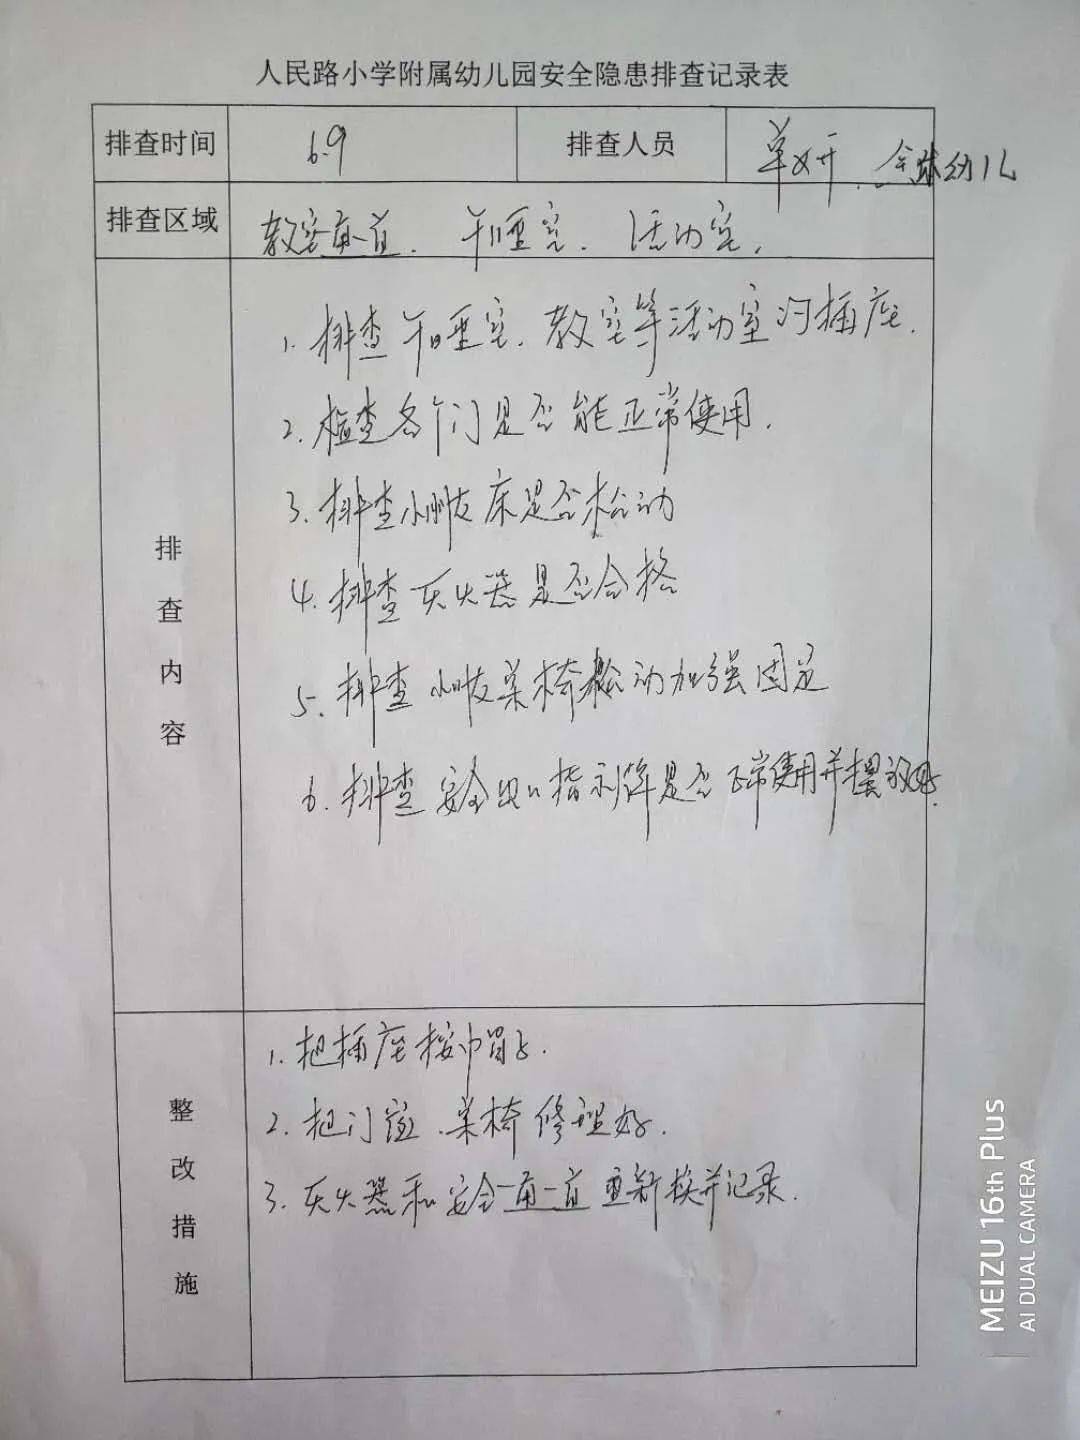 人民路小学附属幼儿园安全隐患排查记录表
排查时间 6.9 排查人员 单妍、全体幼儿
排查区域 教室通道、午睡室、活动室。
排查内容
1. 排查午睡室、教室等活动室的插座.
2. 检查各个门是否能正常使用.
3. 排查小朋友床是否松动
4. 排查灭火器是否合格
5. 排查小朋友桌椅松动加强固定
6. 排查安全出口指示牌是否正常使用并摆放好.
整改措施
1. 把插座按牢固好.
2. 把门窗、桌椅修理好.
3. 灭火器和安全通道重新换并记录.
MEIZU 16th Plus
AI DUAL CAMERA